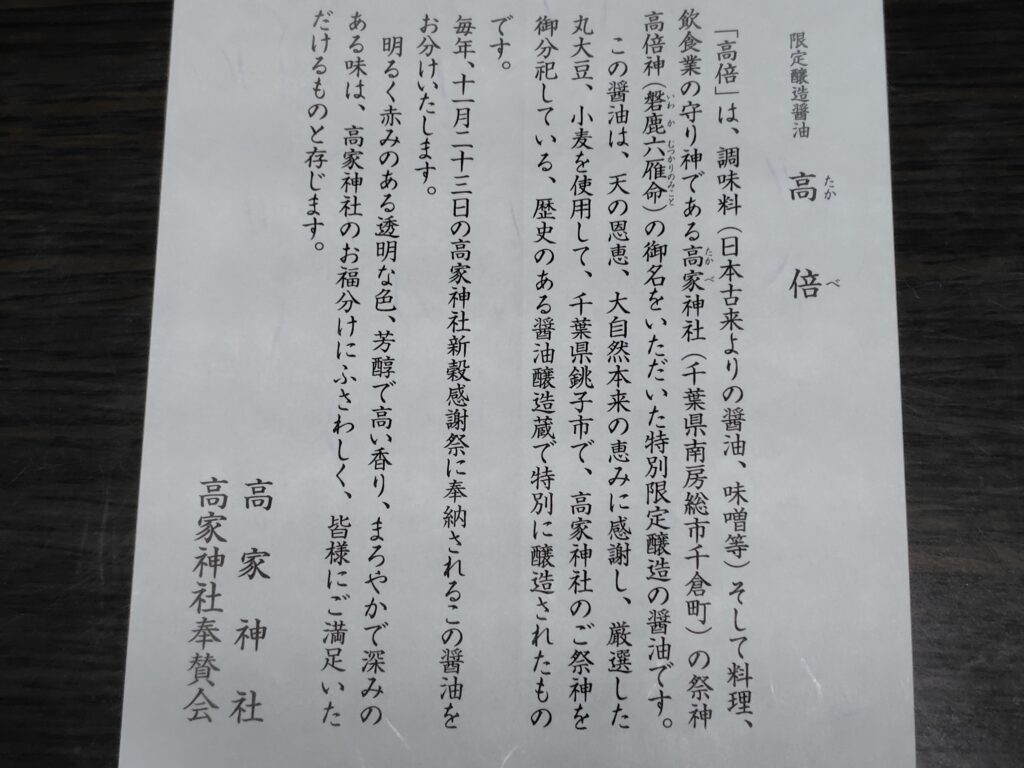 限定醸造醤油　高倍
たか　べ
「高倍」は、調味料（日本古来よりの醤油、味噌等）そして料理、
飲食業の守り神である高家神社（千葉県南房総市千倉町）の祭神
たかべ
高倍神（磐鹿六雁命）の御名をいただいた特別限定醸造の醤油です。
いわか　じつかりのみこと
この醤油は、天の恩恵、大自然本来の恵みに感謝し、厳選した
丸大豆、小麦を使用して、千葉県銚子市で、高家神社のご祭神を
御分祀している、歴史のある醤油醸造蔵で特別に醸造されたもの
です。
毎年、十一月二十三日の高家神社新穀感謝祭に奉納されるこの醤油を
お分けいたします。
明るく赤みのある透明な色、芳醇で高い香り、まろやかで深みの
ある味は、高家神社のお福分けにふさわしく、皆様にご満足いた
だけるものと存じます。
高家神社
高家神社奉賛会